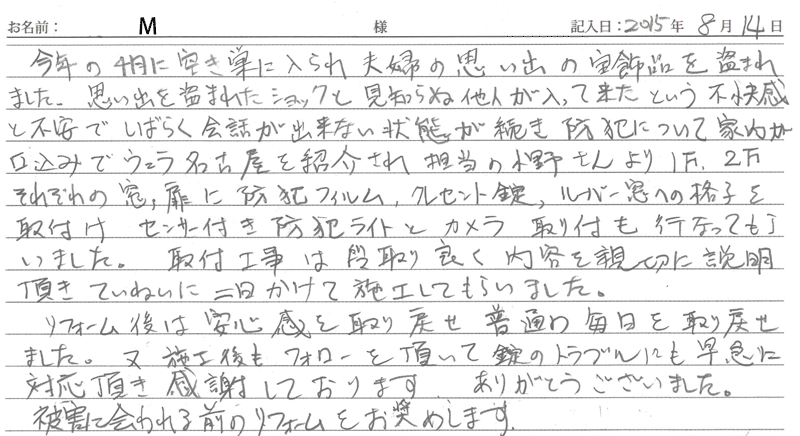 お名前： M 様 記入日：2015年 8月 14日
今年の4月に空き巣に入られ 夫婦の思い出の宝飾品を盗まれ
ました。思い出を盗まれたショックと見知らぬ他人が入って来たという不快感
と不安で しばらく会話が出来ない状態が続き 防犯について家内が
口込みでウェラ名古屋を紹介され 担当の水野さんより
それぞれの窓,扉に防犯フィルム,クレセント錠,ルーバー窓への格子を
取付け センサー付き防犯ライトとカメラ 取り付も行なってもら
いました。 取付工事は段取り良く内容を親切に説明
頂きていねいに二日かけて施工してもらいました。
リフォーム後は安心感を取り戻せ普通の毎日を取り戻せ
ました。又施工後もフォローを頂いて錠のトラブルにも早急に
対応頂き感謝しております ありがとうございました。
被害に会われる前のリフォームをお奨めします。